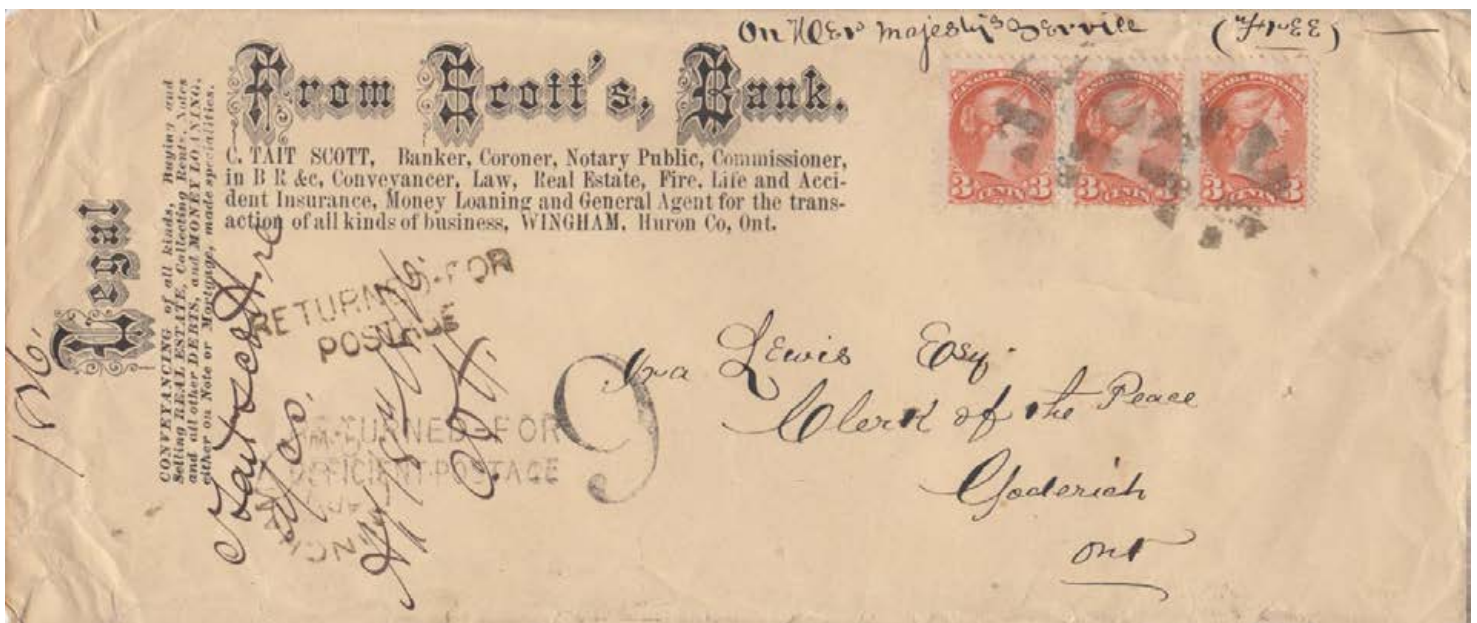 On Her Majesty's Service (Free)
From Scott's, Bank.
C. TAIT SCOTT, Banker, Coroner, Notary Public, Commissioner,
in B R &c, Conveyancer, Law, Real Estate, Fire, Life and Acci-
dent Insurance, Money Loaning and General Agent for the trans-
action of all kinds of business, WINGHAM, Huron Co, Ont.
Legal
CONVEYANCING of all kinds, Buying and
Selling REAL ESTATE, Collecting Rents, Notes
and all other DEBTS, and MONEY LOANING,
either on Note or Mortgage, made specialities.
CANADA POSTAGE
3 CENTS 3
CANADA POSTAGE
3 CENTS 3
CANADA POSTAGE
3 CENTS 3
RETURNED-FOR
POSTAGE
RETURNED-FOR
DEFICIENT-POSTAGE
9
Ira Lewis Esq.
Clerk of the Peace
Goderich
Ont